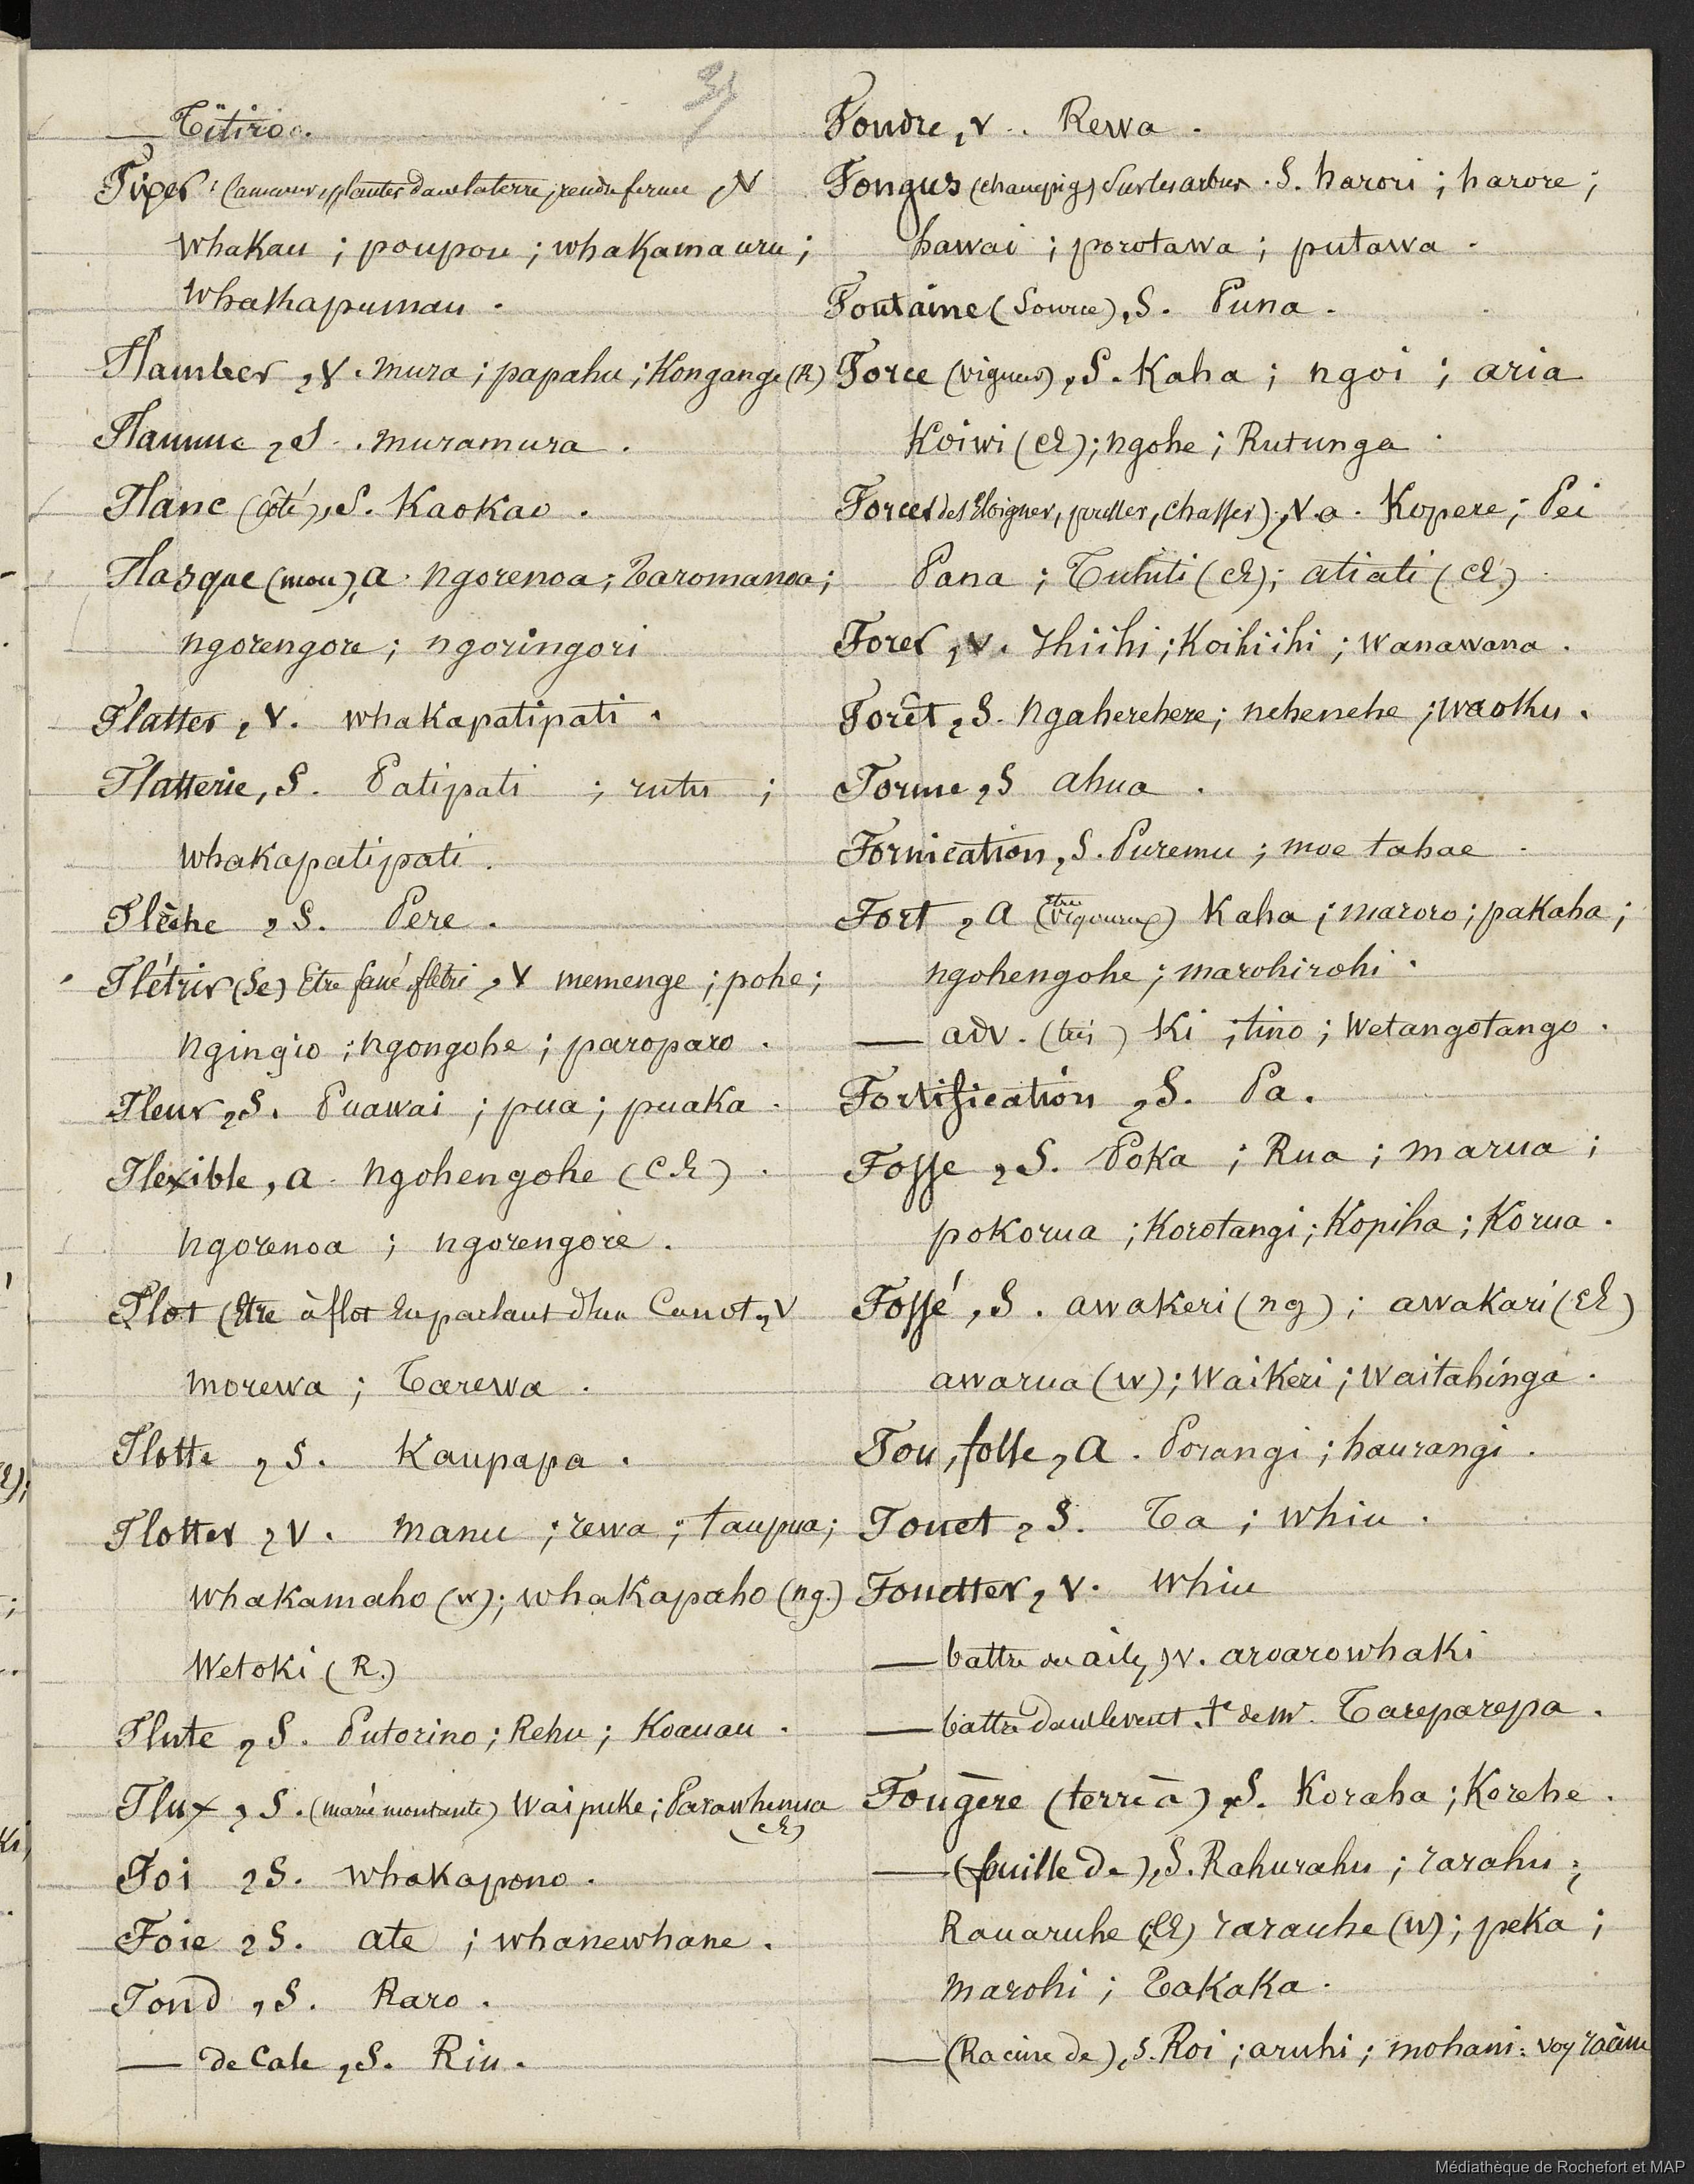 31
— Titiro.
Fixer (amarrer, planter dans la terre, rendre ferme, v
whakau ; poupou ; whakama uru ;
whakapumau .
Flamber , v . mura ; papahu ; Kongange (R)
Flamme , S . muramura .
Flanc (côté), S . Kaokao .
Flasque (mou), a . ngorenoa ; taromanoa ;
ngorengore ; ngoringori
Flatter , v . whakapatipati .
Flatterie , S . Patipati ; rutu ;
whakapatipati .
Flèche , S . Pere .
Flétrir (Se) Etre fané, flétri , v memenge ; pohe ;
ngingio ; ngongohe ; paroparo .
Fleur , S . Puawai ; pua ; puaka .
Flexible , a . ngohengohe (C.E) .
ngorenoa ; ngorengore .
Flot (Etre à flot En parlant d'un Canot , v
morewa ; Tarewa .
Flotte , S . Kaupapa .
Flotter , v . manu ; rewa ; taupua ;
whakamaho (w) ; whakapaho (ng.)
Wetoki (R.)
Flute , S . Putorino ; Rehu ; Koauau .
Flux , S . (marée montante) Waipuke ; Parawhenua
(CE)
Foi , S . whakapono .
Foie , S . ate ; whanewhane .
Fond , S . Raro .
— de Cale , S . Riu .
Fondre , v . Rewa .
Fongus (champig) Sur les arbres . S . harori ; harore ;
hawai ; porotawa ; putawa .
Fontaine (Source) , S . Puna .
Force (vigueur) , S . Kaha ; ngoi ; aria
Koiwi (CE) ; ngohe ; Rutunga .
Forcer (de s'Eloigner, chasser) , v.a . Kopere ; Pei
Pana ; Tuhiti (CE) ; atiati (CE) .
Forer , v . Ihiihi ; Koihiihi ; Wanawana .
Forêt , S . Ngaherehere ; nehenehe ; waoku .
Forme , S ahua .
Fornication , S . Puremu ; moe tahae .
Fort , a (être vigoureux) Kaha ; maroro ; pakaha ;
ngohengohe ; marohirohi .
— adv . (très) Ki ; tino ; Wetangotango .
Fortification , S . Pa .
Fosse , S . Poka ; Rua ; marua ;
pokorua ; Korotangi ; Kopiha ; Korua .
Fossé , S . awakeri (ng) ; awakari (CE)
awarua (w) ; Waikeri ; Waitahinga .
Fou, folle , a . Porangi ; haurangi .
Fouet , S . Ta ; whiu .
Fouetter , v . whiu
— battre des ailes , v . aroarowhaki
— battre dans le vent . te de me . Tareparepa .
Fougère (terre à) , S . Koraha ; Korehe .
— (feuille de) , S . Rahurahu ; rarahu ;
Rauaruhe (CE) rarauhe (w) ; peka ;
marohi ; Takaka .
— (Racine de) , S . Roi ; aruhi ; mohani : Voy racine
Médiathèque de Rochefort et MAP